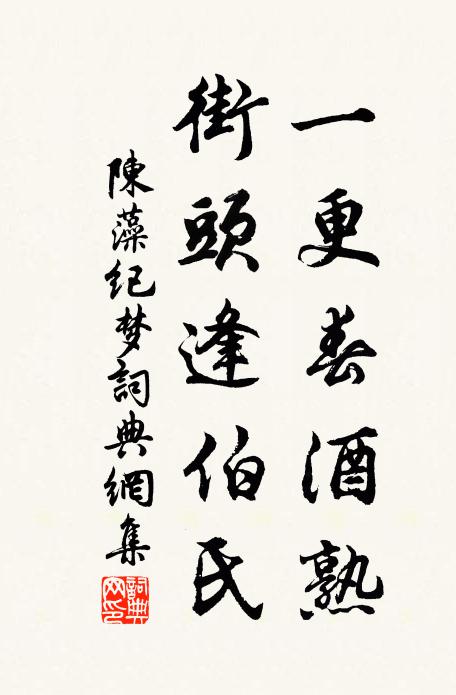 一更春酒熟
街頭逢伯氏
陳藻纪梦詞典網集
詞典网印